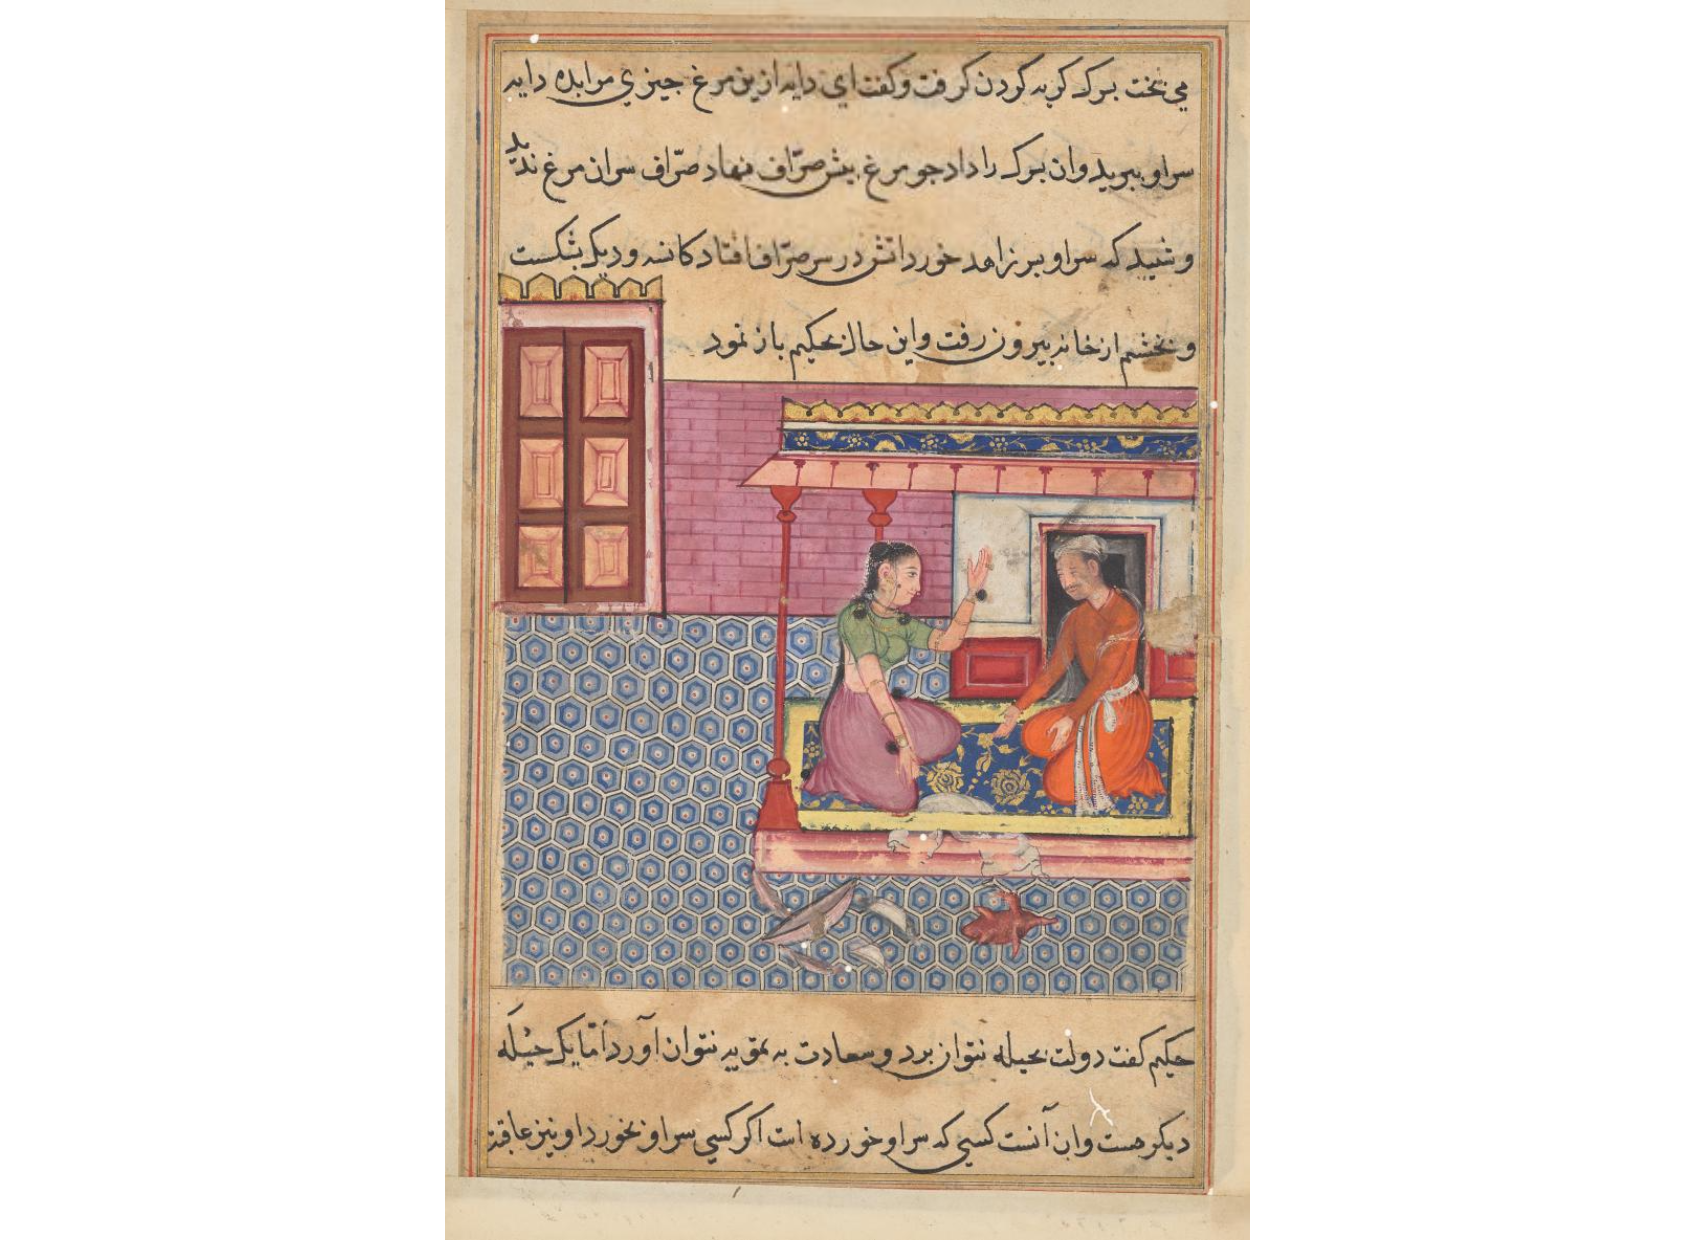 می‌پخت بسرک کریه کردن کرفت و کفت ای دایه ازین مرغ چیزی مرا بده دایه
سر او ببرید و ان بسرک را داد جو مرغ بیش صرّاف نهاد صرّاف سر ان مرغ ندید
و شنید که سر او بسر زاهد خورد اتش در سر صرّاف افتاد کاسه و دیک بشکست
و بخشم از خانه بیرون رفت و این حال بحکیم باز نمود
حکیم کفت دولت بحیله نتوان برد و سعادت به تمویه نتوان آورد أمّا یک حیله
دیکر هست و ان آنست کسی که سر او خورده است اکر کسی سر او بخورد او نیز عاقبت